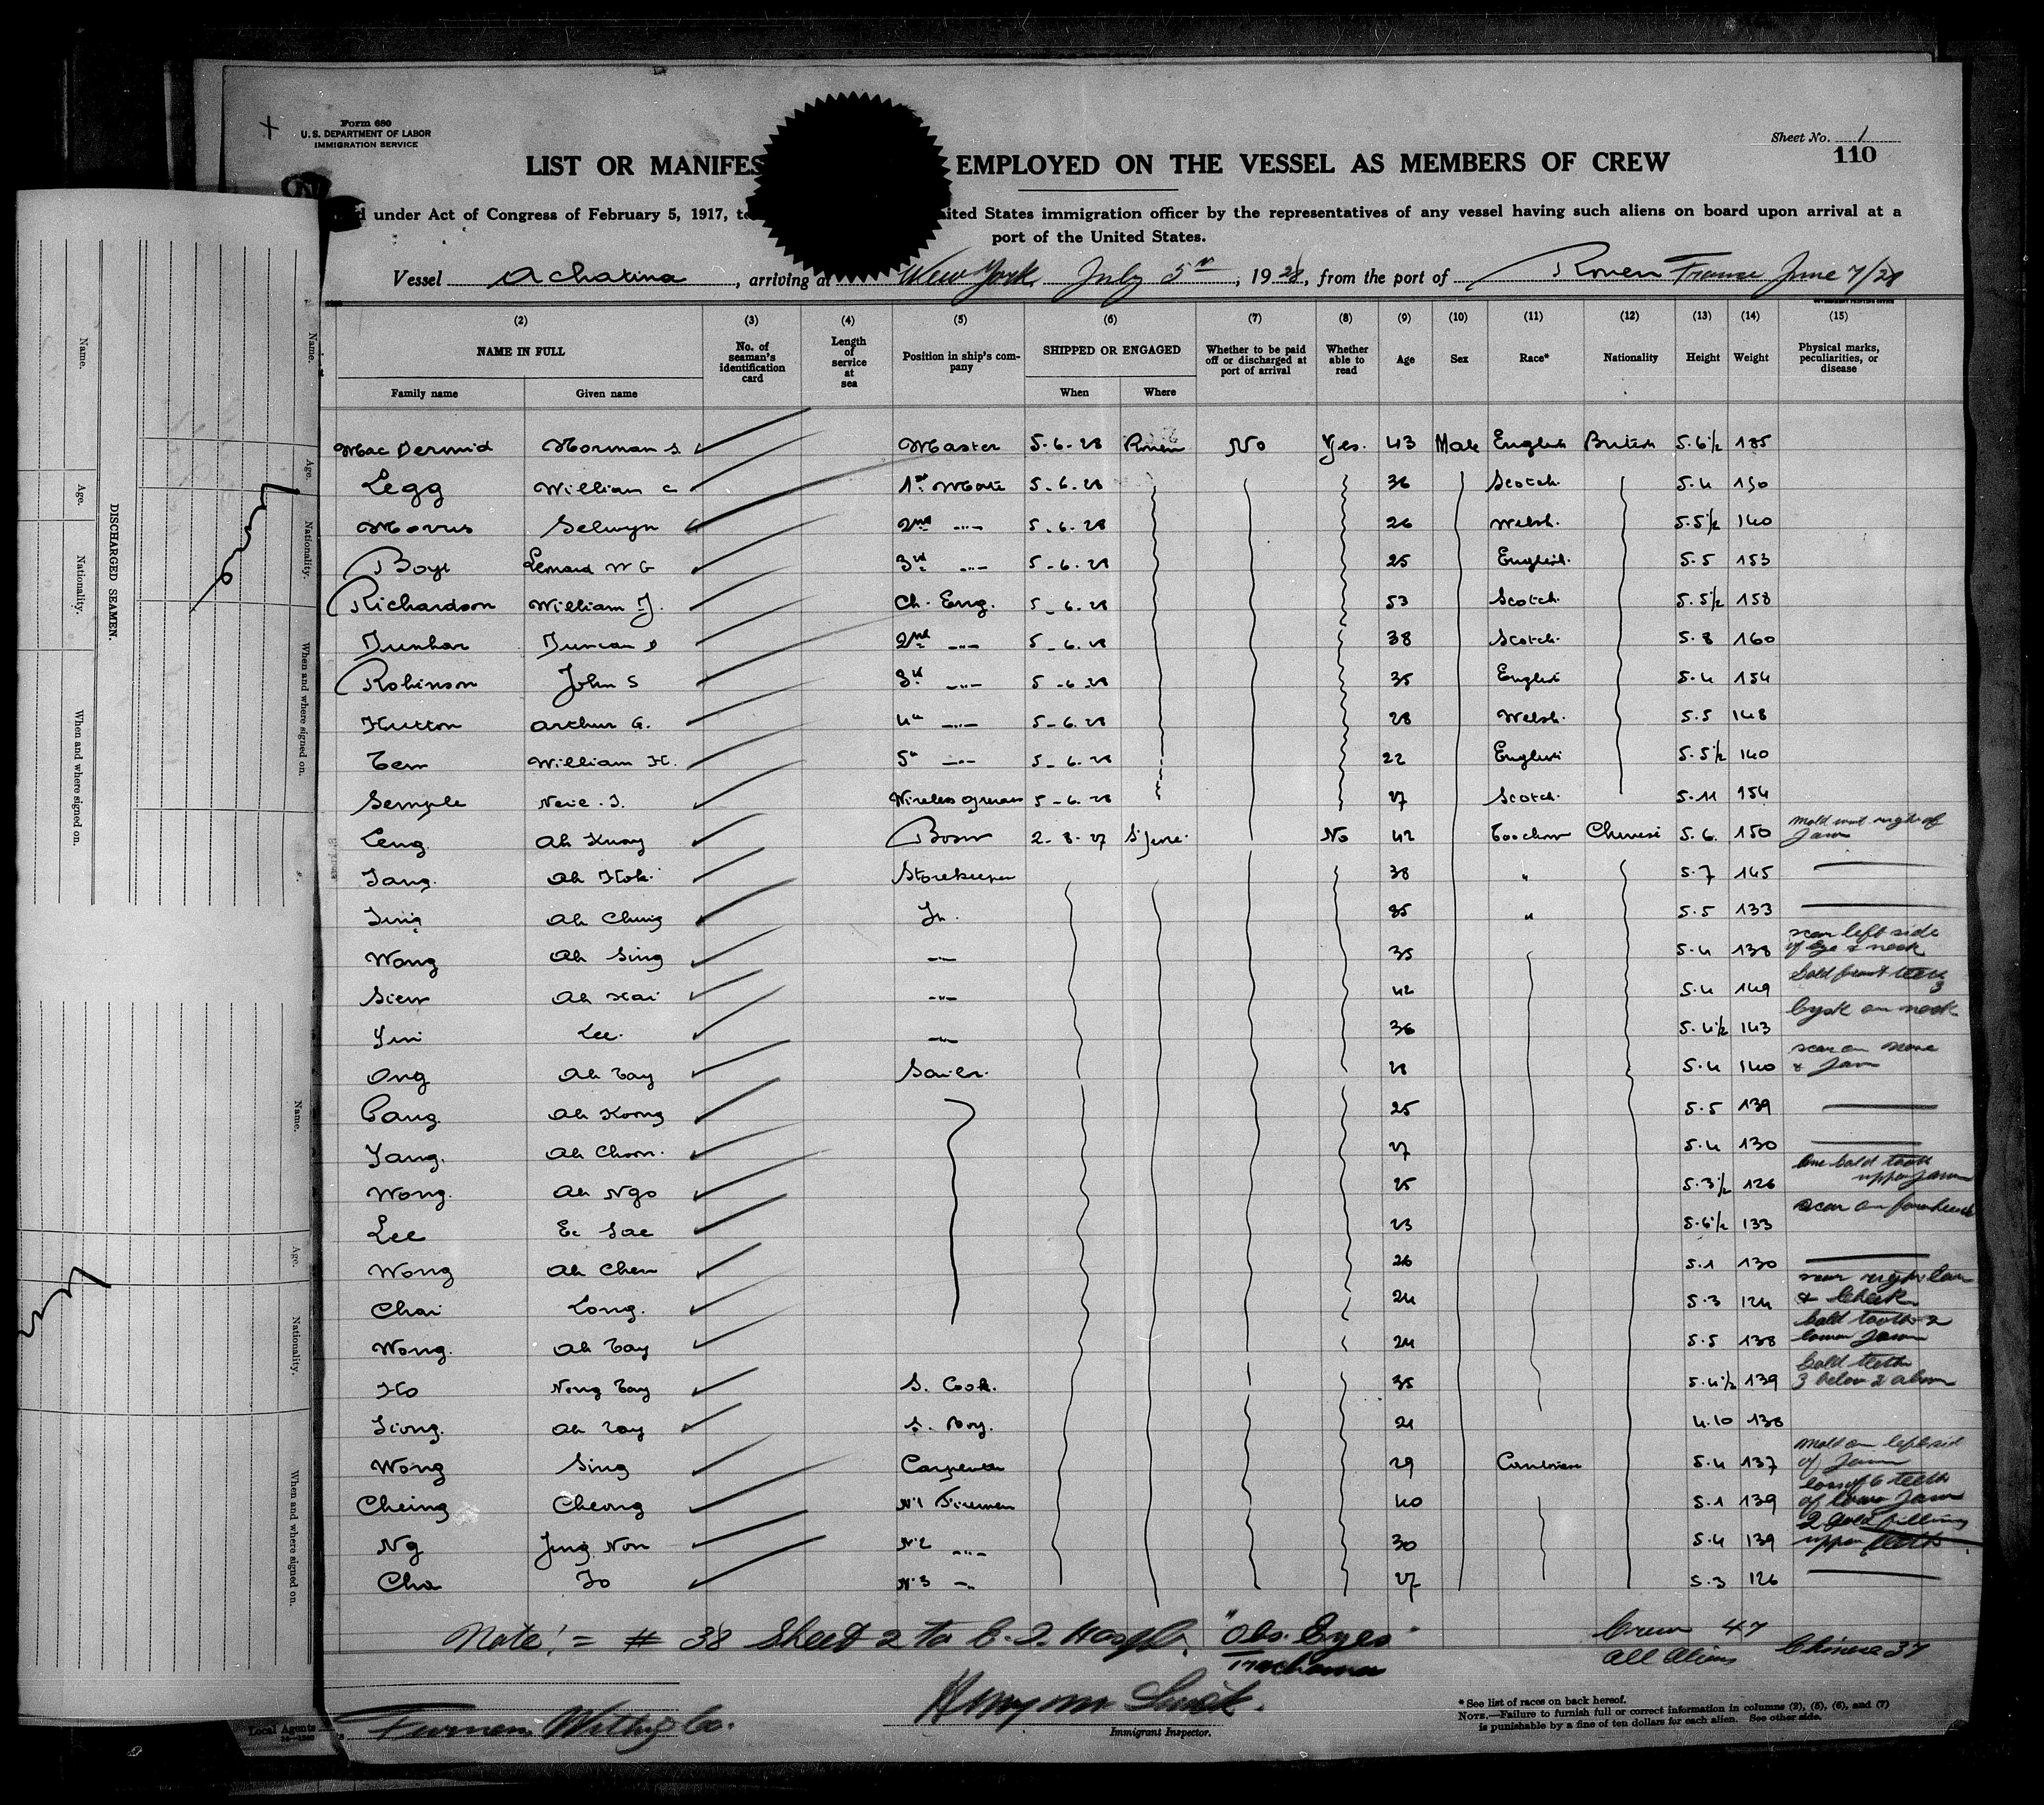 Form 680
U. S. DEPARTMENT OF LABOR
IMMIGRATION SERVICE
Sheet No. 1
110
LIST OR MANIFES EMPLOYED ON THE VESSEL AS MEMBERS OF CREW
d under Act of Congress of February 5, 1917, to ited States immigration officer by the representatives of any vessel having such aliens on board upon arrival at a
port of the United States.
Vessel Achatina, arriving at New York, July 5th, 1928, from the port of Rouen France June 7/28
GOVERNMENT PRINTING OFFICE
(2) (3) (4) (5) (6) (7) (8) (9) (10) (11) (12) (13) (14) (15)
NAME IN FULL No. of seaman's identification card Length of service at sea Position in ship's company SHIPPED OR ENGAGED Whether to be paid off or discharged at port of arrival Whether able to read Age Sex Race* Nationality Height Weight Physical marks, peculiarities, or disease
Family name Given name When Where
Mac Dermid Norman S. Master 5-6-28 Rouen No Yes. 43 Male English British 5.6½ 185
Legg William C 1st Mate 5-6.28 36 Scotch. 5.4 150
Morris Selwyn 2nd -"- 5-6.28 26 Welsh. 5.5½ 140
Boye Leonard W G 3rd -"- 5-6.28 25 English. 5.5 153
Richardson William J. Ch. Eng. 5-6.28 53 Scotch. 5.5½ 158
Dunbar Duncan D 2nd -"- 5-6.28 38 Scotch. 5.8 160
Robinson John S 3rd -"- 5-6.28 35 English 5.4 154
Hutton Arthur G. 4th -"- 5-6.28 28 Welsh. 5.5 148
William H. 5th -"- 5-6.28 22 English 5.5½ 140
Semple 5-6.28 27 Scotch. 5.11 154
Leng Ah Kuay Bosn 2-8-27 S'pore. No 42 Chinese 5.6. 150 right of Jaw
Tang. Ah Hok. Storekeeper 38 " 5.7 145
Ah Ching 35 " 5.5 133
Wong Ah Sing -"- 35 5.4 138 scar left side of Eye & neck
Siew Ah Kai -"- 42 5.4 149 Gold front teeth 3
Lee. -"- 36 5.4½ 143 Cyst on neck
Ong Ah Tay Sailr. 28 5.4 140 scar on nose & Jaw
Pang. Ah Koong 25 5.5 139
Yang. Ah Choon. 27 5.4 130
Wong. Ah Ngo 25 5.3½ 126 One Gold tooth upper Jaw
Lee Ee Sae 23 5.6½ 133 scar on forehead
Wong Ah Chen 26 5.1 130
Chai Long. 24 5.3 124 scar right & Cheek
Wong. Ah Tay 24 5.5 138 Gold tooth 2 lower Jaw
Ho Nong Tay S. Cook. 35 5.4½ 139 Gold teeth 3 below 2 above
Siong. Ah Tay S. Boy. 21 4.10 138
Wong Sing Carpenter 29 5.4 137 Mole on left side of Jaw
Cheing Cheong No1 Firemen 40 5.1 139 loss of 6 teeth of lower Jaw
Ng Jing Non No2 -"- 30 5.4 139 2 gold fillings upper teeth
Cha No3 -"- 27 5.3 126
Note! = # 38 Sheet 2 to E. I. Hospl. "Obs. Eyes"
Trachoma
Crew 47
All Aliens Chinese 37
Local Agents
Furness Withy Co.
Immigrant Inspector.
*See list of races on back hereof.
NOTE.—Failure to furnish full or correct information in columns (2), (5), (6), and (7)
is punishable by a fine of ten dollars for each alien. See other side.
DISCHARGED SEAMEN.
Name. Age. Nationality. When and where signed on.
Name. Age. Nationality. When and where signed on.
Name. Age. Nationality. When and where signed on.